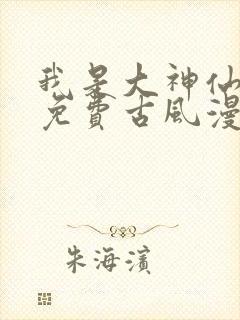 我是大神仙
免费古风漫
朱海滨